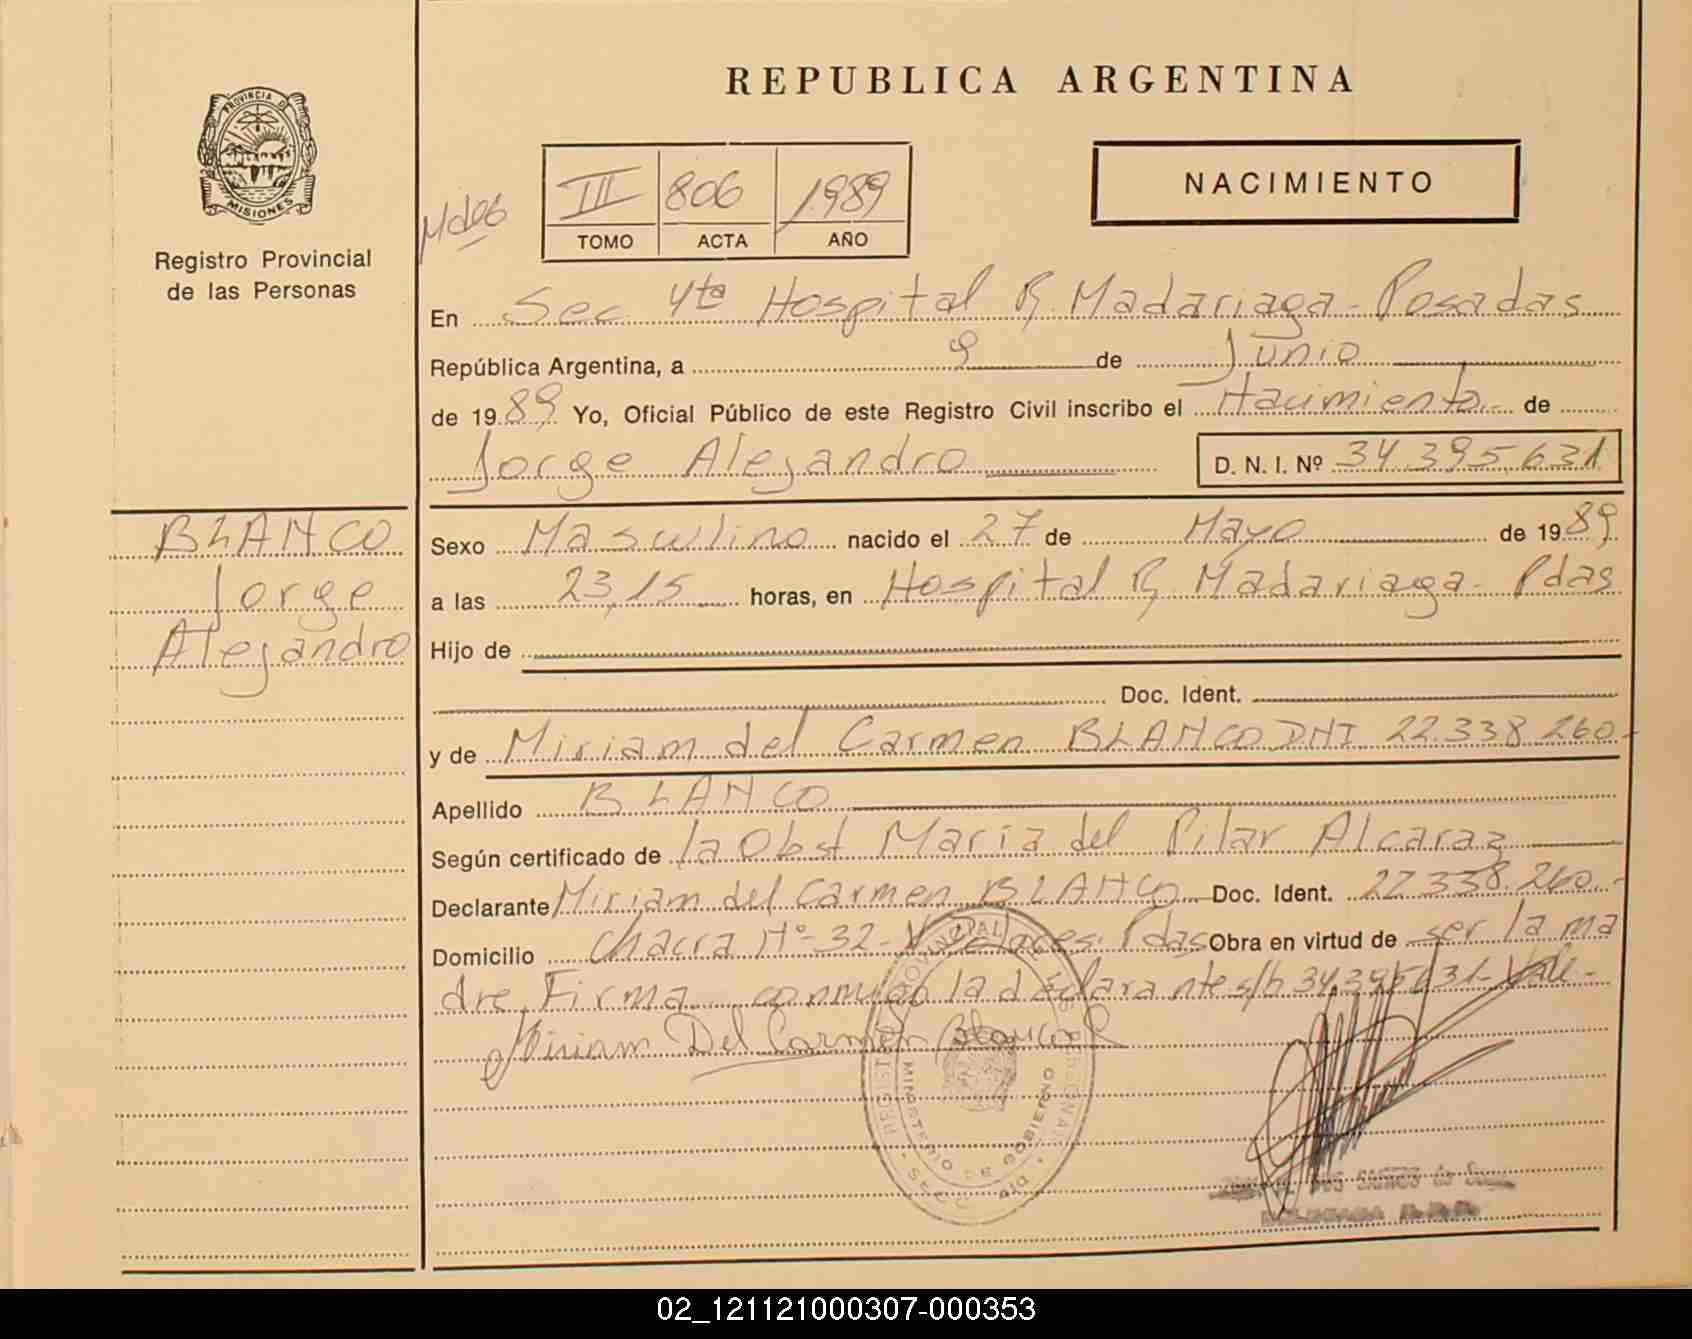 REPUBLICA ARGENTINA
PROVINCIA DE
MISIONES
Registro Provincial
de las Personas
NACIMIENTO
III 806 1989
TOMO ACTA AÑO
En Sec 4ta Hospital R. Madariaga - Posadas
República Argentina, a 9 de Junio
de 19 89 Yo, Oficial Público de este Registro Civil inscribo el Nacimiento de
Jorge Alejandro D. N. I. Nº 34.395.631
BLANCO
Jorge
Alejandro
Sexo Masculino nacido el 27 de Mayo de 19 89
a las 23,15 horas, en Hospital R. Madariaga - Pdas
Hijo de
Doc. Ident.
y de Miriam del Carmen BLANCO DNI 22.338.260-
Apellido BLANCO
Según certificado de la Obst María del Pilar Alcaraz
Declarante Miriam del Carmen BLANCO Doc. Ident. 22.338.260-
Domicilio Chacra Nº 32- Pdas Obra en virtud de ser la ma
dre. Firma conmigo la declarante s/b 34.395.631- Vale-
Miriam Del Carmen Blanco
MINISTERIO DE GOBIERNO
02_121121000307-000353